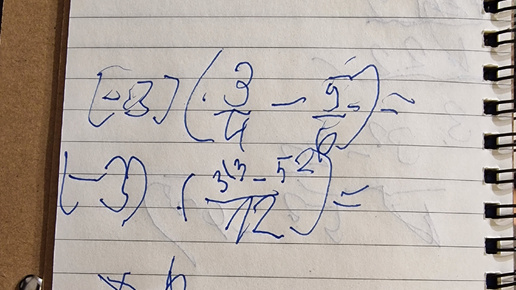 (-3) (3/4 - 5/6) =
(-3) · (3^3 - 5^2 / 12) =